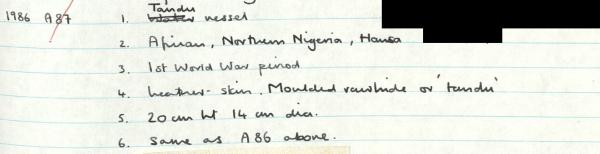 Tandu
1986 A87 1. Water vessel
2. African, Northern Nigeria, Hausa
3. 1st World War period
4. Leather-skin. Moulded rawhide or 'tandu'
5. 20 cm ht 14 cm dia.
6. Same as A86 above.